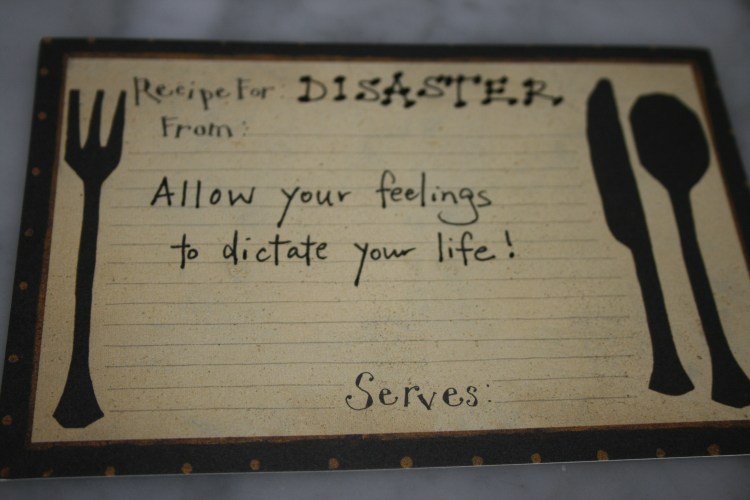 Recipe For: DISASTER
From:
Allow your feelings
to dictate your life!
Serves: